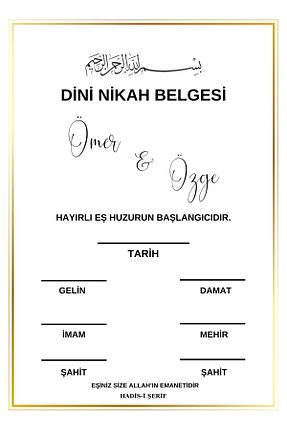 بسم الله الرحمن الرحيم
DİNİ NİKAH BELGESİ
Ömer
&
Özge
HAYIRLI EŞ HUZURUN BAŞLANGICIDIR.
TARİH
GELİN DAMAT
İMAM MEHİR
ŞAHİT ŞAHİT
EŞİNİZ SİZE ALLAH'IN EMANETİDİR
HADİS-İ ŞERİF